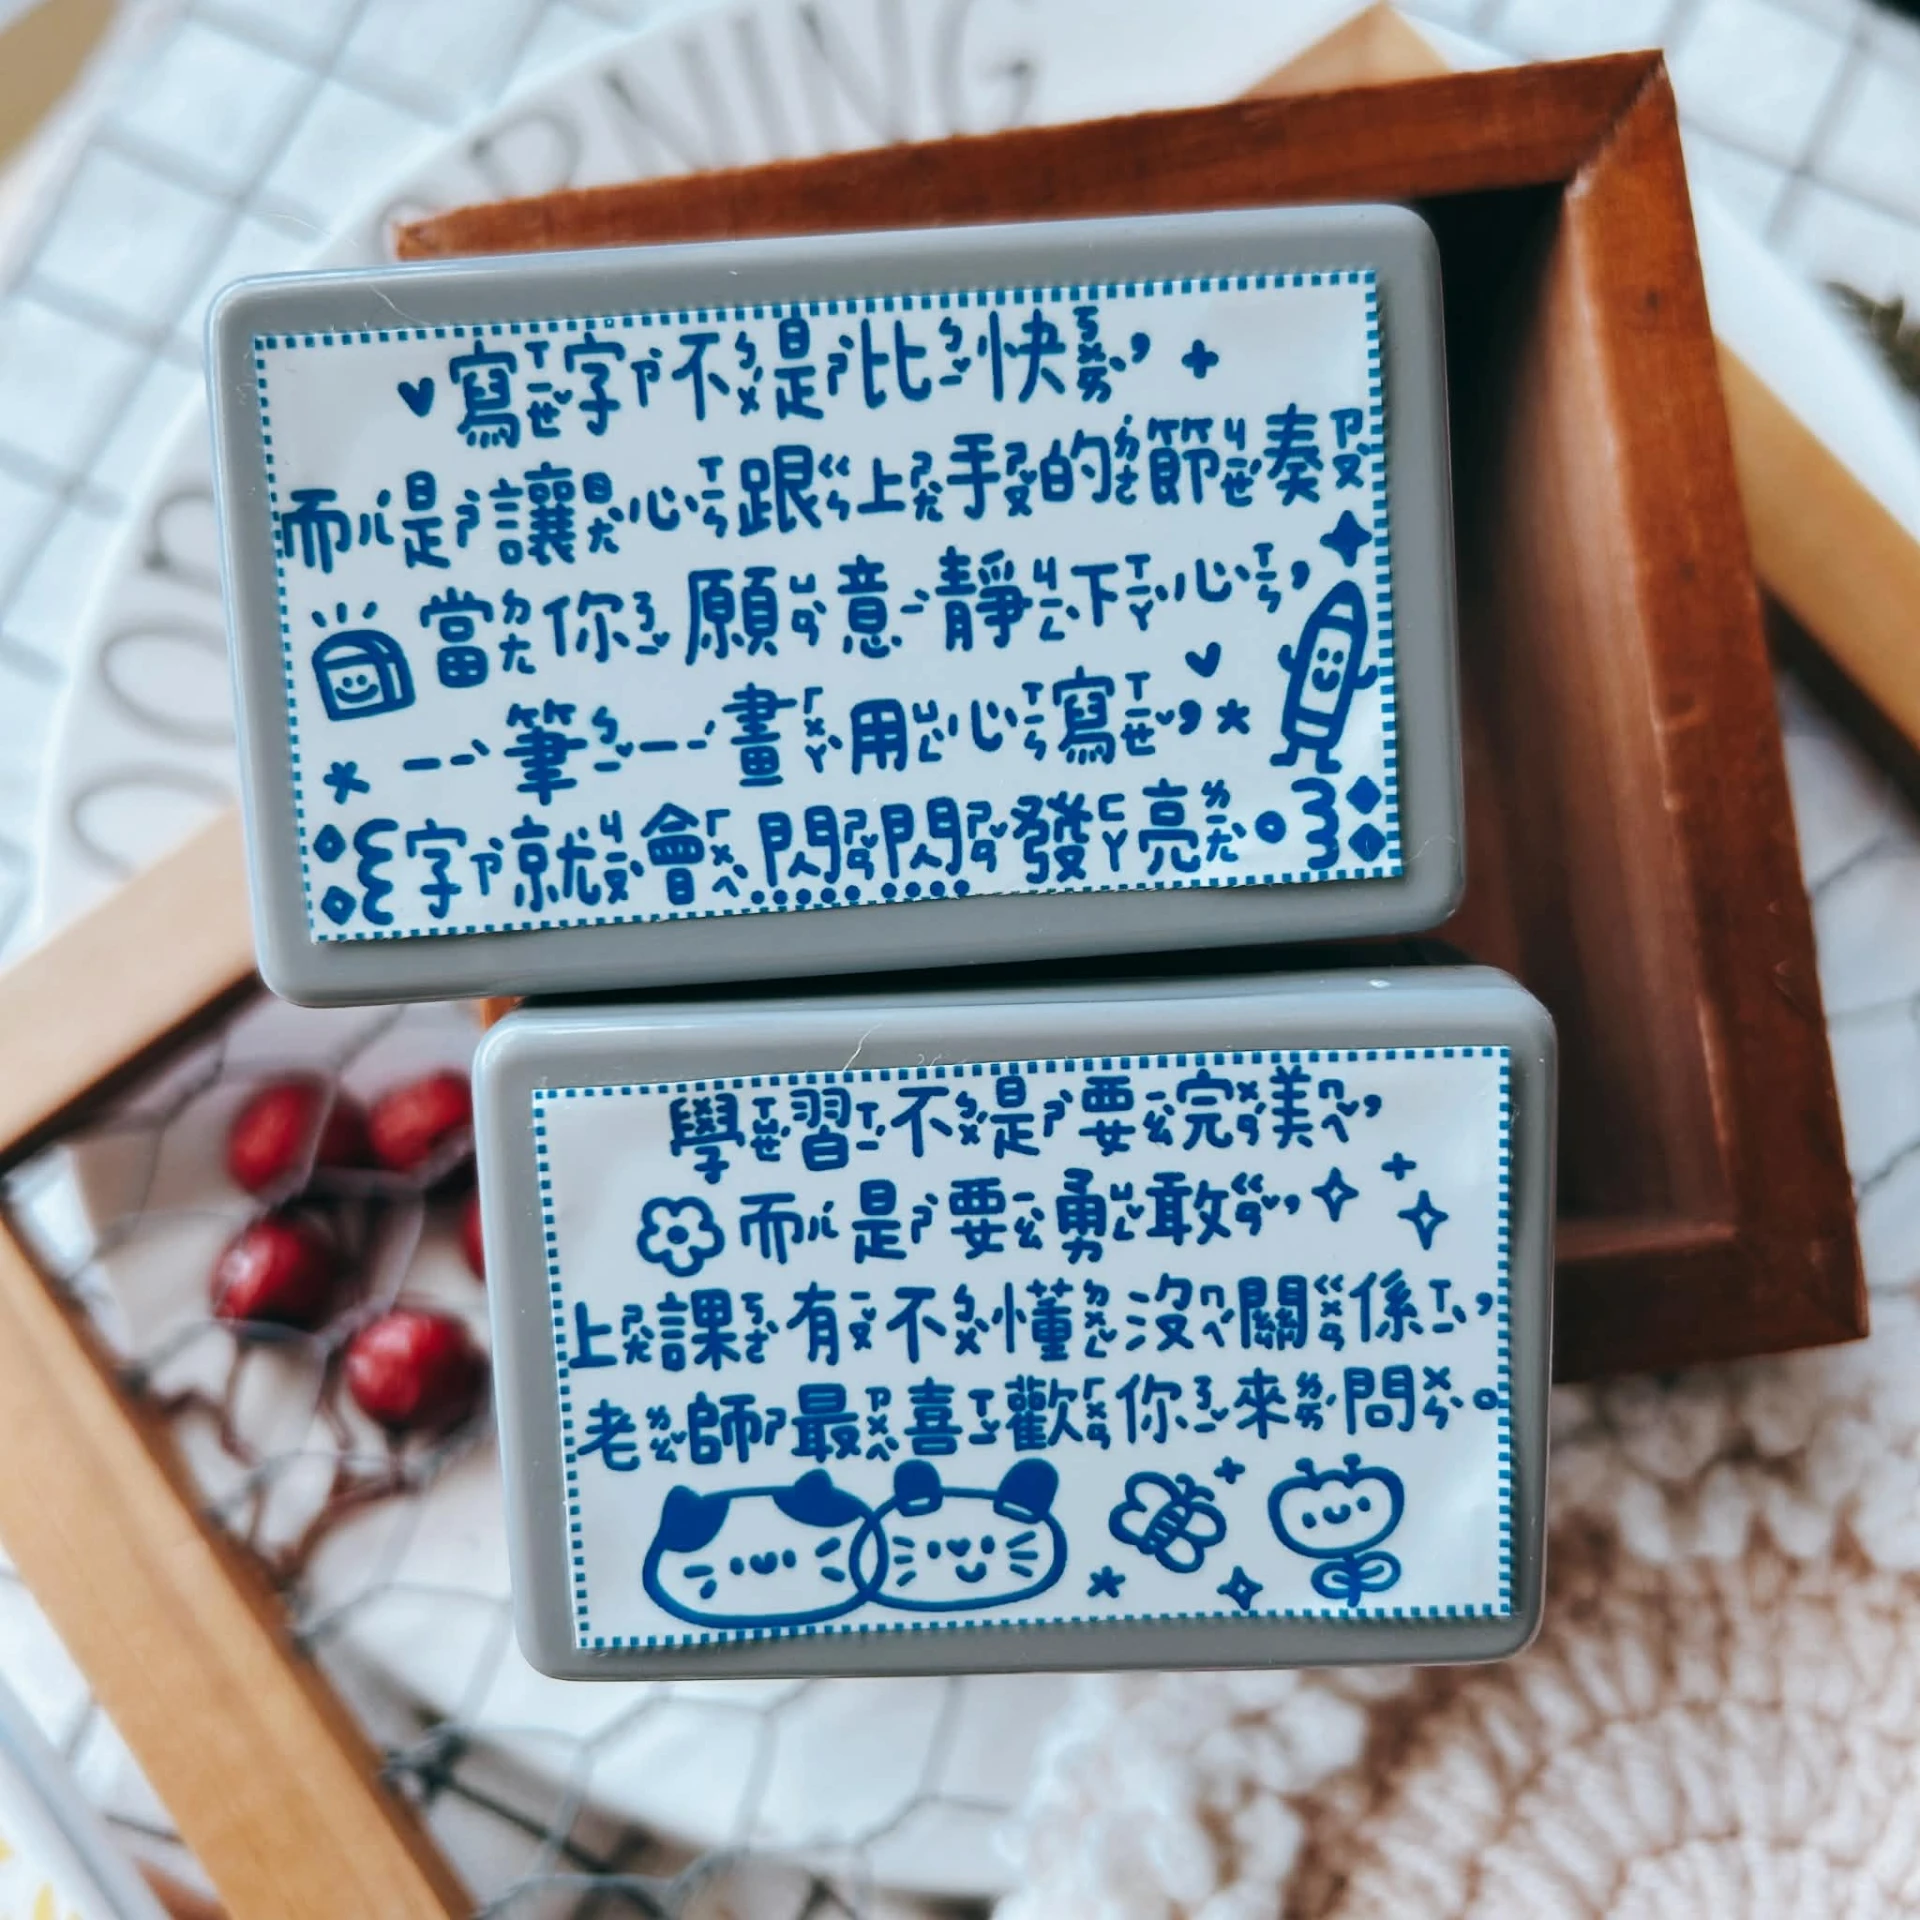 寫字不是比快，
而是讓心跟上手的節奏
當你願意靜下心，
一筆一畫用心寫，
字就會閃閃發亮。
學習不是要完美，
而是要勇敢，
上課有不懂沒關係，
老師最喜歡你來問。